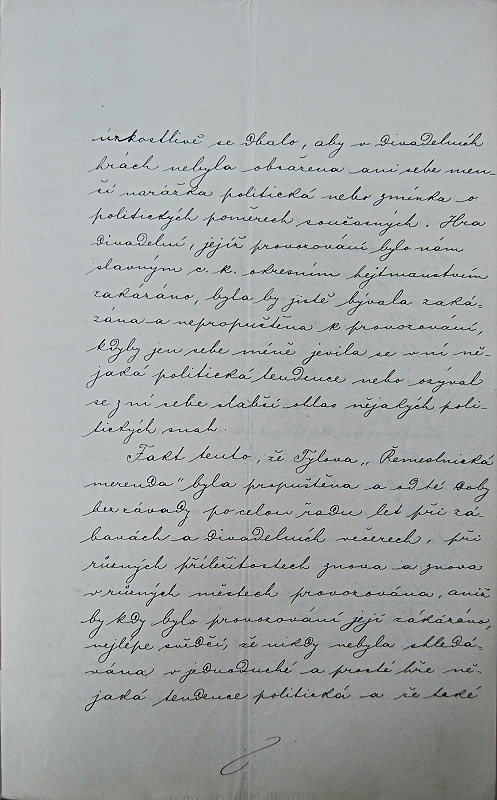 úzkostlivě se dbalo, aby v divadelních
hrách nebyla obsažena ani sebe men-
ší narážka politická nebo zmínka o
politických poměrech současných. Hra
divadelní, jejíž provozování bylo nám
slavným c. k. okresním hejtmanstvím
zakázáno, byla by jistě bývala zaká-
zána a nepropuštěna k provozování,
kdyby jen sebe méně jevila se v ní ně-
jaká politická tendence nebo ozýval
se z ní sebe slabší ohlas nějakých poli-
tických snah.
Fakt tento, že Tylova „Řemeslnická
merenda" byla propuštěna a od té doby
bez závady po celou řadu let při zá-
bavách a divadelních večerech, při
různých příležitostech znova a znova
v různých městech provozována, aniž
by kdy bylo provozování její zákázáno,
nejlépe svědčí, že nikdy nebyla shledá-
vána v jednoduché a prosté hře ně-
jaká tendence politická a že také